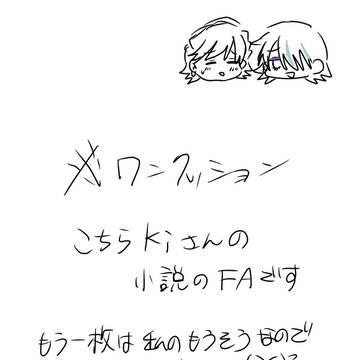 ワンクッション
こちらKiさんの
小説のFAです
もう一枚は私のもうそうなので